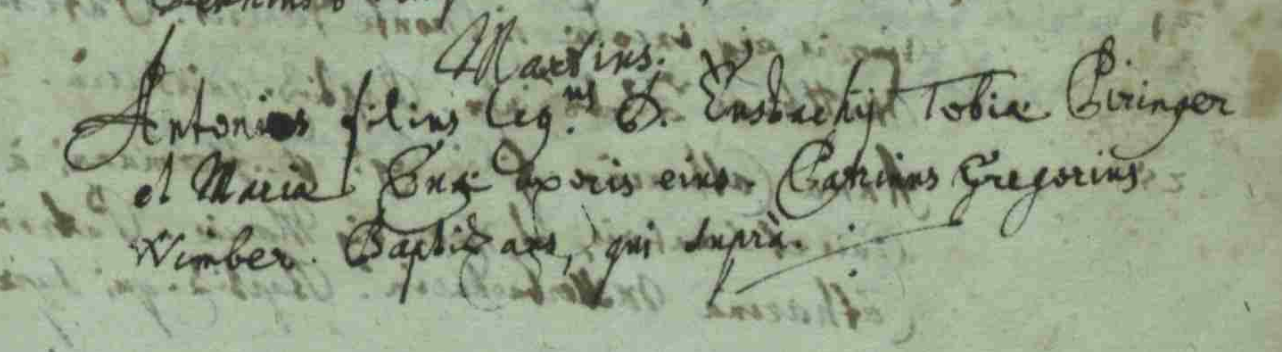 Martius.
Antonius filius leg.ms D. Eustachij Tobiæ Piringer
et Mariæ Evæ uxoris eius. Patrinus Gregorius
Wimber. Baptizans, qui supra.